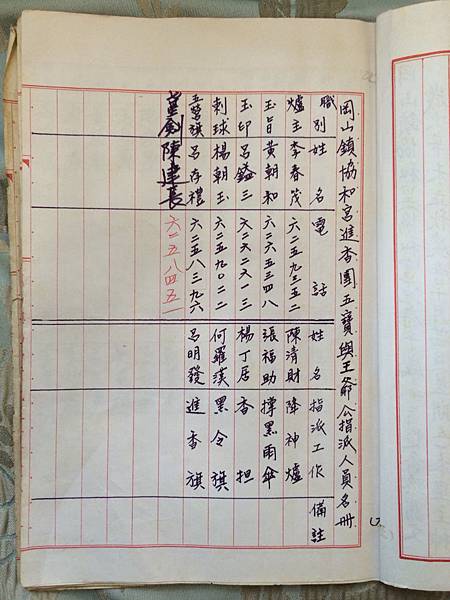 岡山鎮協和宮進香團五寶與王爺公指派人員名冊
職別 姓名 電話 姓名 指派工作 備註
爐主 李春茂 六二五九三五二 陳清財 降神爐
玉旨 黃朝和 六二六五三四八 張福助 撑黑雨傘
玉印 呂鎰三 六二六二六一三 楊丁居 香担
刺球 楊朝玉 六二五九0二二 何羅漢 黑令旗
五營旗 呂存禮 六二五八三九六 呂明發 進香旗
陳建長 六二五八四五一